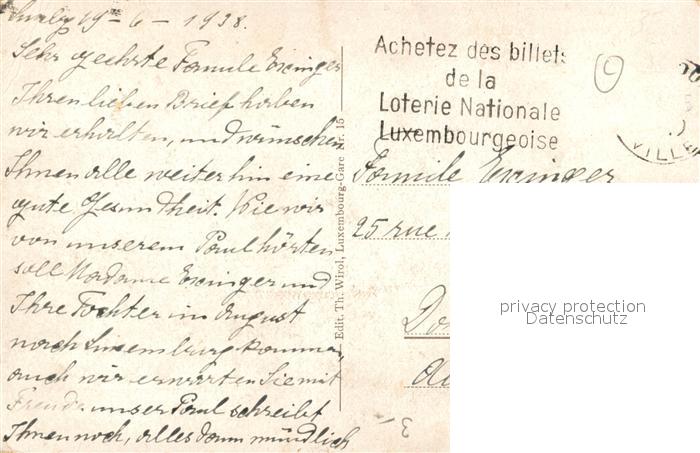 19-6-1938.
Sehr geehrte Familie Exinger
Ihren lieben Brief haben
wir erhalten, und wünschen
Ihnen alle weiterhin eine
gute Gesundheit. Wie wir
von unserem Paul hörten
soll Madame Exinger und
Ihre Tochter im August
nach Luxemburg kommen,
auch wir erwarten Sie mit
Freude unser Paul schreibt
Ihnen noch, alles dann mündlich
Edit. Th. Wirol, Luxembourg-Gare Nr. 15
Achetez des billets
de la
Loterie Nationale
Luxembourgeoise
VILLE
Famile Exinger
25 rue
privacy protection
Datenschutz
3